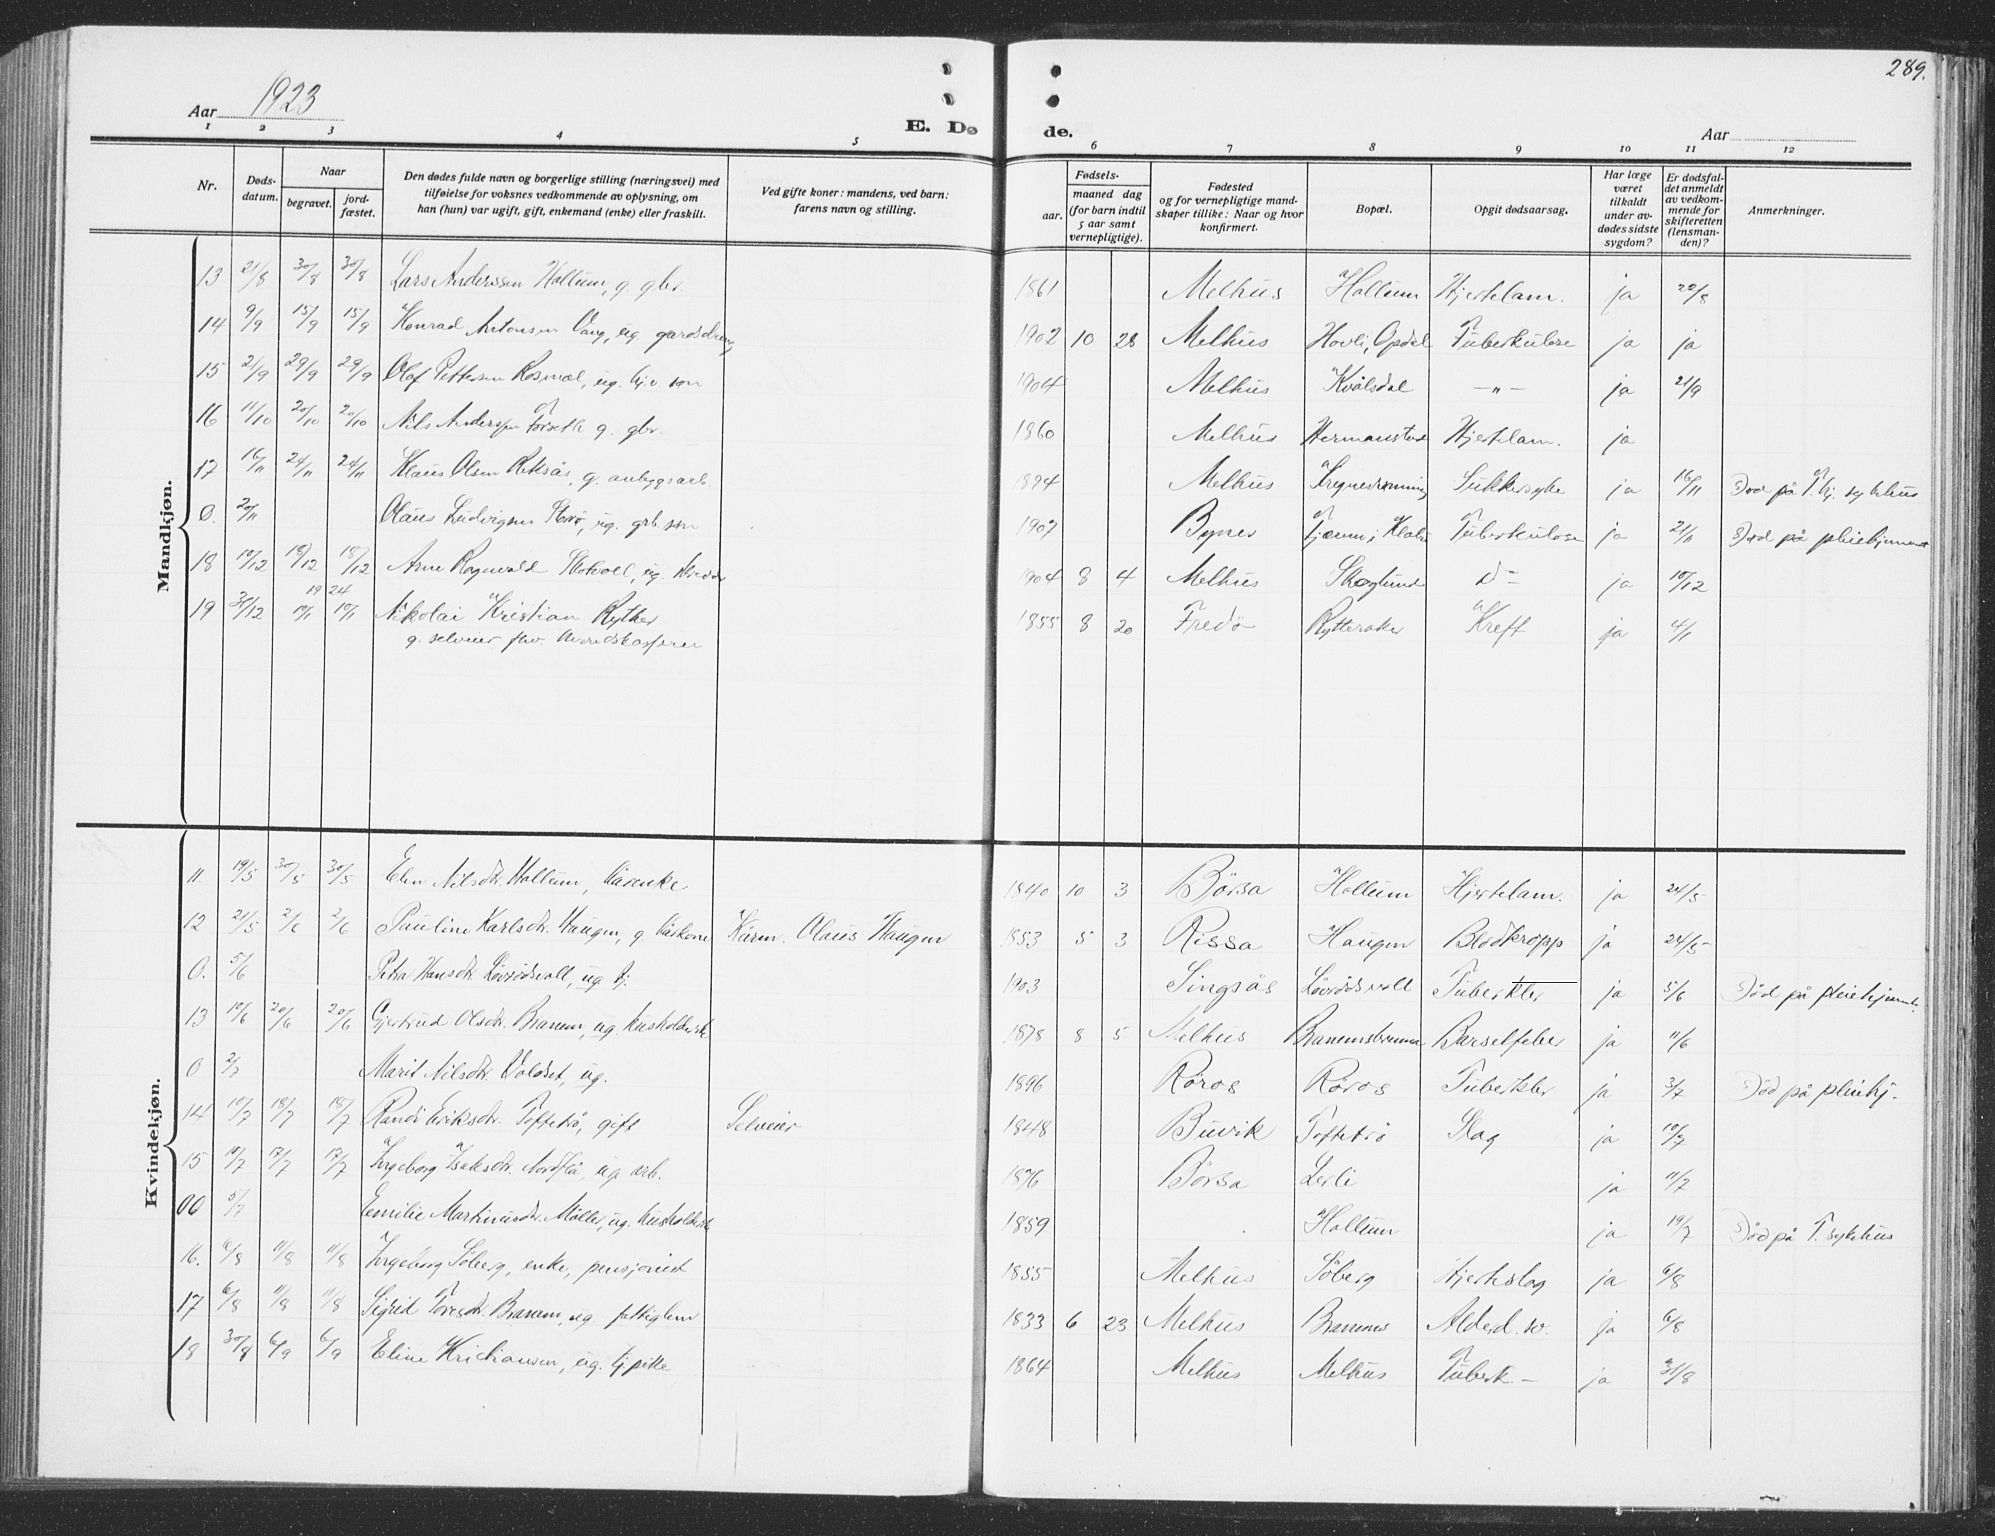 289.
Aar 1923
E. Dø de.
Aar
1 2 3 4 5 6 7 8 9 10 11 12
Nr.
Døds-
datum.
Naar
begravet.
jord-
fæstet.
Den dødes fulde navn og borgerlige stilling (næringsvei) med
tilføielse for voksnes vedkommende av oplysning, om
han (hun) var ugift, gift, enkemand (enke) eller fraskilt.
Ved gifte koner: mandens, ved barn:
farens navn og stilling.
Fødsels-
aar.
maaned dag
(for barn indtil
5 aar samt
vernepligtige).
Fødested
og for vernepligtige mand-
skaper tillike: Naar og hvor
konfirmert.
Bopæl.
Opgit dødsaarsag.
Har læge
været
tilkaldt
under av-
dødes sidste
sygdom?
Er dødsfal-
det anmeldt
av vedkom-
mende for
skifteretten
(lensman-
den)?
Anmerkninger.
Mandkjøn.
13 21/8 30/8 30/8 Lars Anderssen Hollum, g. gbr. 1861 Melhus Hollum Hjertelam. ja 22/8
14 9/9 15/9 15/9 Konrad Antonsen Vang, ug. gardsdreng 1902 10 28 Melhus Hovli, Opdal Tuberkulose ja ja
15 21/9 29/9 29/9 Olaf Pettersen Rosmæl, ug. tj. s. søn 1904 Melhus Kvålsdal —„— ja 21/9
16 11/10 20/10 20/10 Nils Anderssen Forseth g. gbr. 1860 Melhus Hermanstad Hjertelam. ja
17 16/11 24/11 24/11 Klaus Olsen Reksås, g. anleggsarb. 1894 Melhus Sukkersyke ja 16/11 Død på T.hj. sykehus
0. 20/11 Olaus Ludvigsen Storø, ug. grb. søn 1907 Byneset Tjærem i Klæbu Tuberkulose ja 21/11 Død på pleiehjemmet
18 10/12 18/12 18/12 Arne Ragnvald Skotvoll, ug. 1904 8 4 Melhus Skoglund d= ja 10/12
1924
19 31/12 10/1 10/1 Nikolai Kristian Rytter 1855 8 20 Fredø Rytteraker Kreft ja 4/1
g. selveier fhv.
Kvindekjøn.
11. 19/5 30/5 30/5 Elen Nilsdtr. Hollum, kårenke 1840 10 3 Børsa Hollum Hjertelam. ja 24/5
12 21/5 2/6 2/6 Pauline Karlsdtr. Haugen, g. kårkone Kårm. Olaus Haugen 1853 5 3 Rissa Haugen Blodkropp ja 24/5
0. 5/6 Petra Hansdtr. Løvrødsvoll, ug. tj. 1903 Singsås Løvrødsvoll Tuberkler ja 5/6 Død på pleiehjemmet.
13 10/6 20/6 20/6 Gjertrud Olsdtr. Branem, ug. husholderske 1878 8 5 Melhus Branemsbrunna Barselfeber ja 11/6
0 2/7 Marit Nilsdtr. Voldset, ug. 1896 Røros Røros Tuberkler ja 3/7 Død på pleiehj.
14 10/7 18/7 18/7 Randi Eriksdtr. Toftetrø, gift Selveier 1848 Buvik Toftetrø Slag ja 10/7
15 10/7 17/7 17/7 Ingeborg Isaksdtr. Nordflå, ug. arb. 1876 Børsa Lerli ja 11/7
00 5/7 Emilie Martinusdtr. Møller, ug. husholdersk 1859 Hollum ja 19/7 Død på T. sykehus
16. 6/8 11/8 11/8 Ingeborg Søberg, enke, pensjonist 1855 Melhus Søberg Hjerteslag ja 6/8
17 6/8 11/8 11/8 Sigrid Toresdtr. Branem, ug. fattiglem 1833 6 23 Melhus Branem Alderd. sv. ja 6/8
18 30/8 6/9 6/9 Eline Kristiansen, ug. tj.pike 1864 Melhus Melhus Tuberk. – ja 31/8